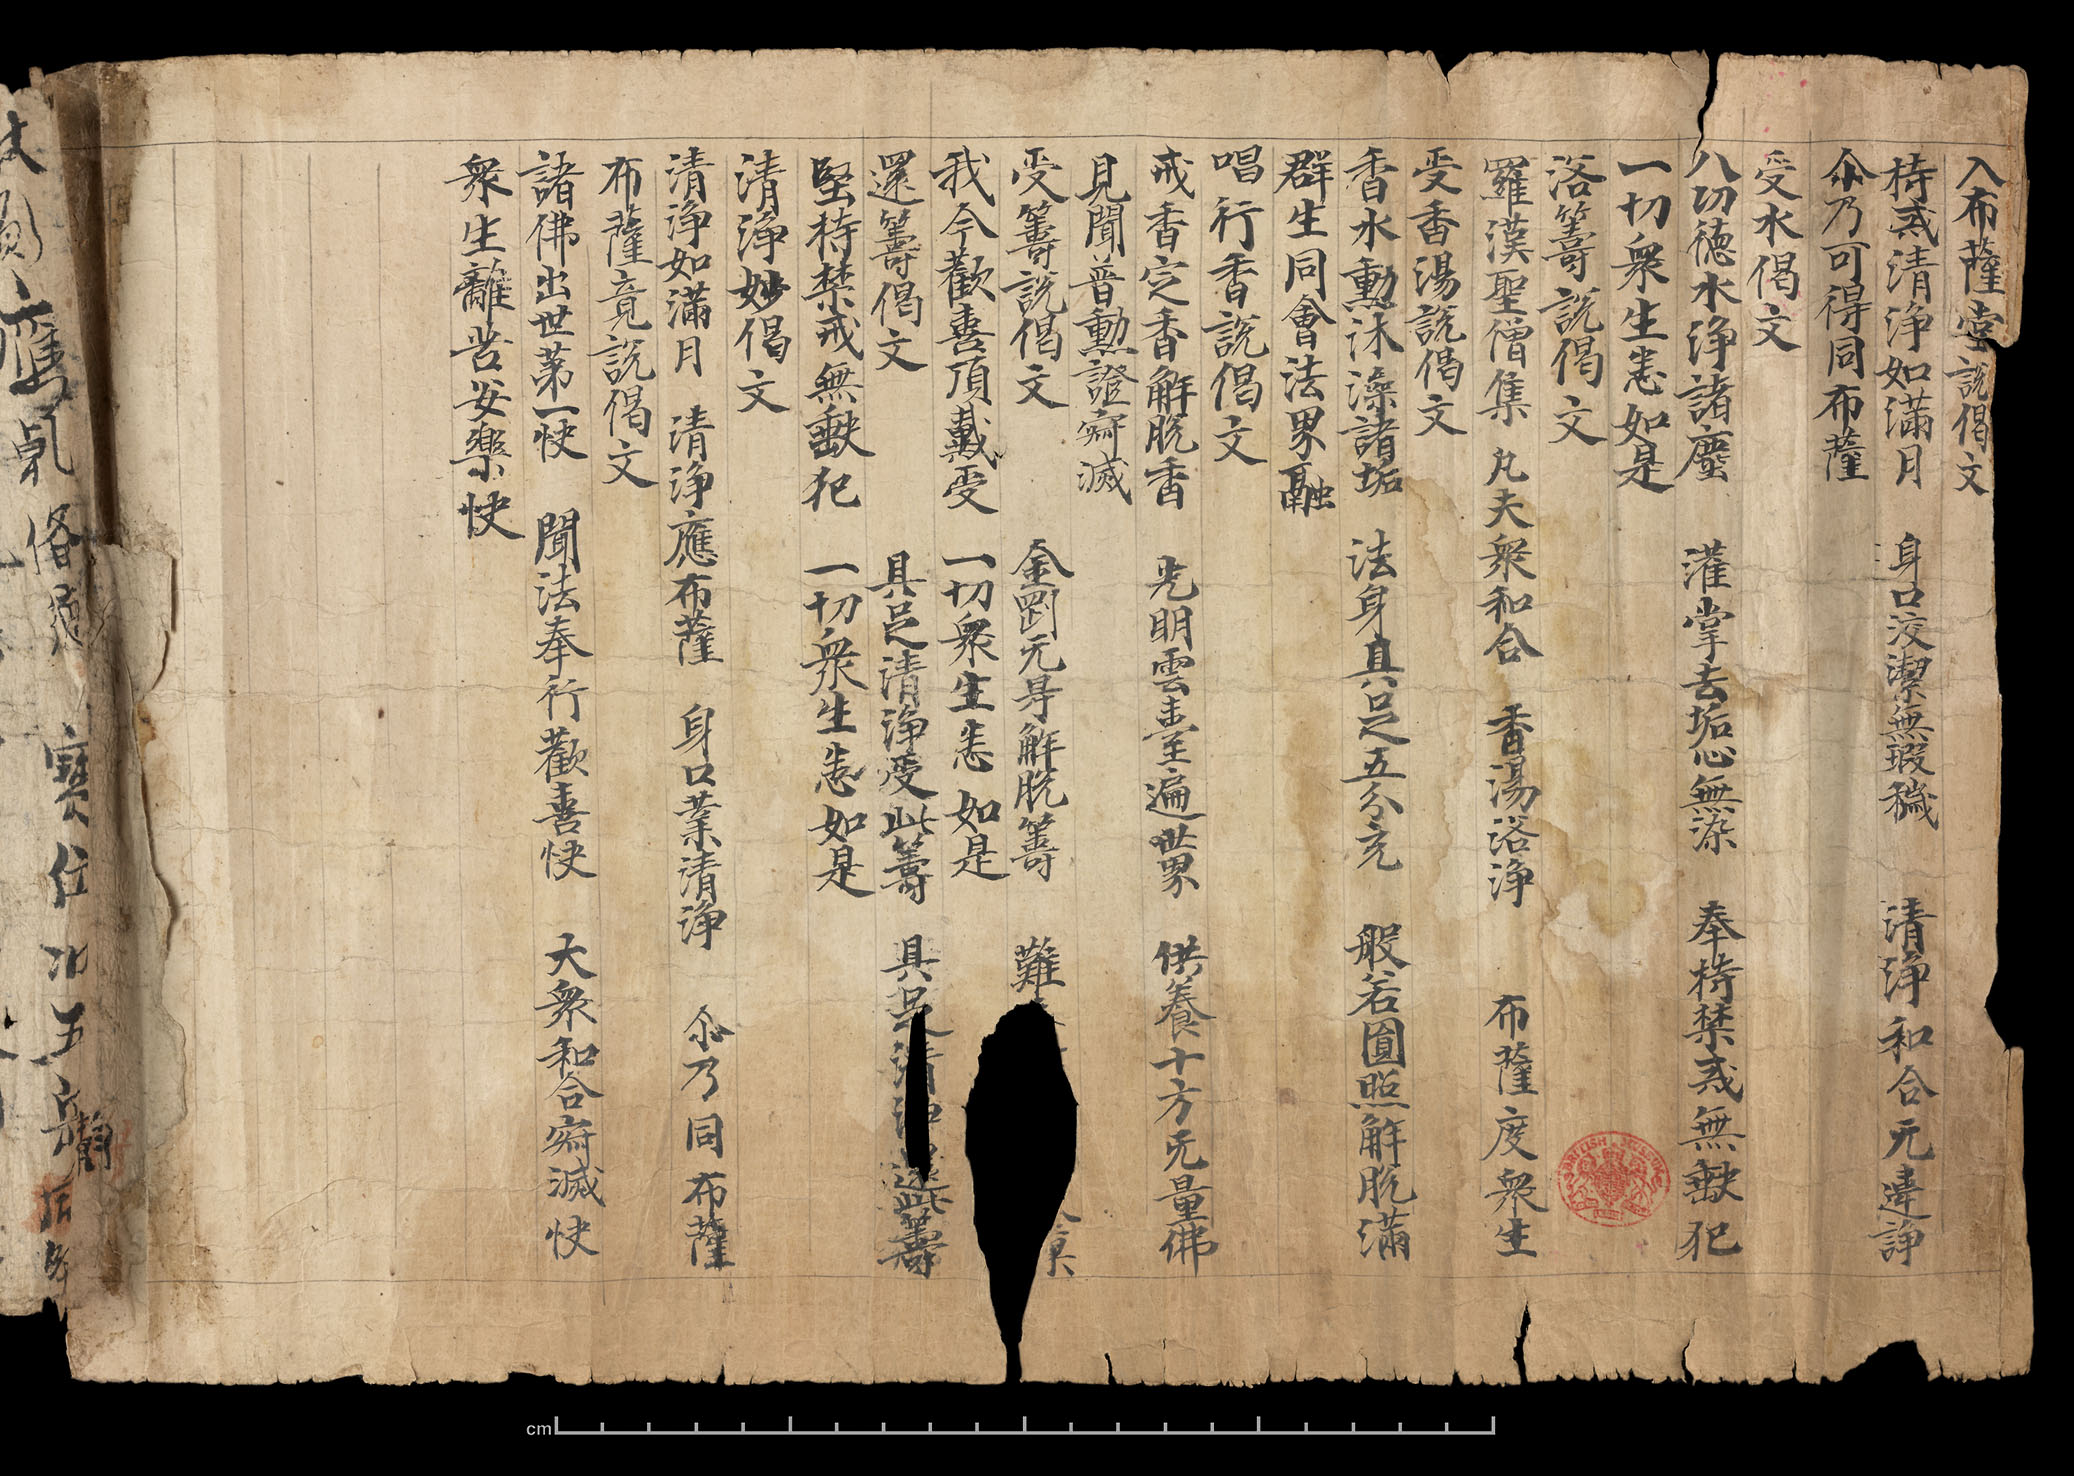 入布薩堂說偈文
持戒清淨如滿月 身口淡潔無瑕穢 清淨和合无違諍
尒乃可得同布薩
受水偈文
八功徳水淨諸塵 灌掌去垢心無染 奉持禁戒無䵳犯
一切衆生悉如是
浴籌說偈文
羅漢聖僧集 凡夫衆和合 香湯浴淨 布薩度衆生
受香湯說偈文
香水勳沐澡諸垢 法身具足五分充 般若圓照解脫滿
群生同會法界融
唱行香說偈文
戒香定香解脫香 光明雲臺遍世界 供養十方无量佛
見聞普勳證寂滅
受籌說偈文 金剛无㝵解脫籌 難
我今歡喜頂戴受 一切衆生悉如是
還籌偈文 具足清淨受此籌 具足清淨還此籌
堅持禁戒無缺犯 一切衆生悉如是
清淨妙偈文
清淨如滿月 清淨應布薩 身口業清淨 尒乃同布薩
布薩竟說偈文
諸佛出世苐一快 聞法奉行歡喜快 大衆和合寂滅快
衆生離苦安樂快
BRITISH MUSEUM
cm